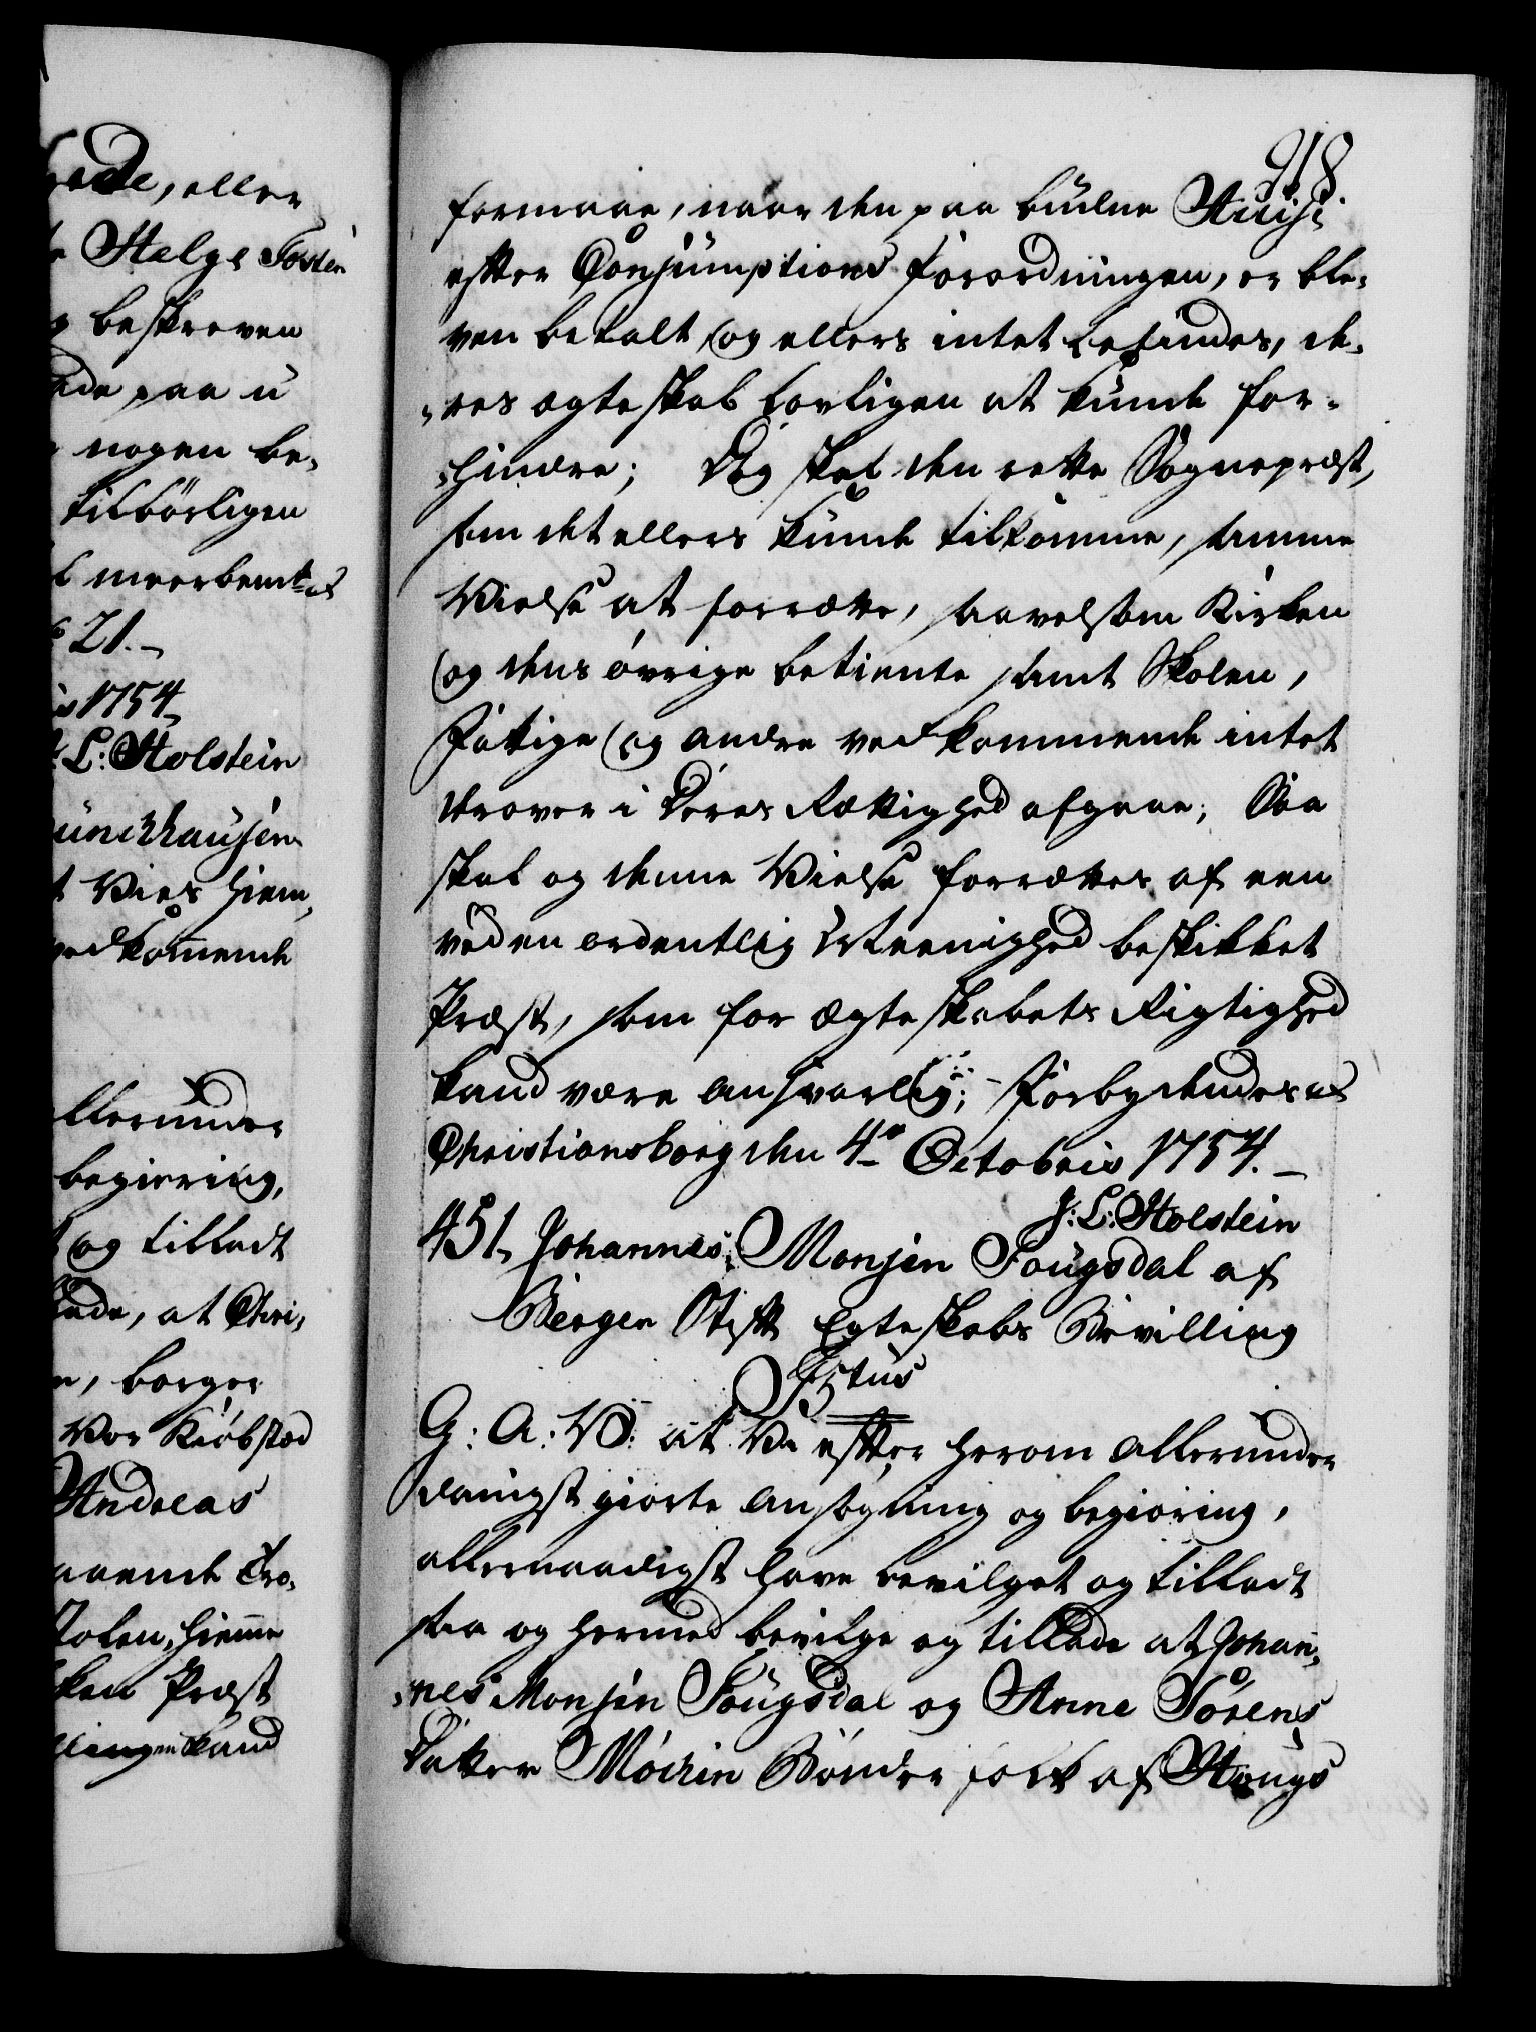 ade, eller
Helge Tosten
beskreven
ade paa u
nogen be-
tilbörligen
meerbemt
21.
1754
L: Holstein
ünchhausen
Vies hiem,
vedkom̄ende
llerunder
begiering,
og tilladt
lade, at Chri,
borger
Vor Kiöbstæd
Andreas
aaende Tro,
Stolen, hiem̄e
ken Præst
lingen kand
918
formaae, naar den paa budne
efter Consumptions Forordningen, er ble,
ven betalt, og ellers intet befindes, de,
,res ægteskab lovligen at kunde for-
,hindre; Dog skal den rette Sognepræst,
som det ellers kunde tilkomme, samme
Vielse at forrætte, saavelsom Kirken
og dens övrige betiente samt Skolen,
Fattige og andre vedkommende intet
derover i Deres Rættighed afgaae; Saa
skal og denne Vielse forrættes af een
ved en ordentlig Meenighed beskikket
Præst, som for Ægteskabets Rigtighed
kand være ansvarlig; Forbydendes
Christiansborg den 4de Octobris 1754.
J: L: Holstein
451, Johannes Monsen Fougsdal af
Bergen Stift Egteskabs Bevilling
G: A: V: at Vi efter herom allerunder
danigst giorte ansögning og begiering,
allernaadigst have bevilget og tilladt
saa og hermed bevilge og tillade at Johan,
,nes Monsen Fougsdal og Anne Sörens
Datter Möchin Bönder folk af Hougs